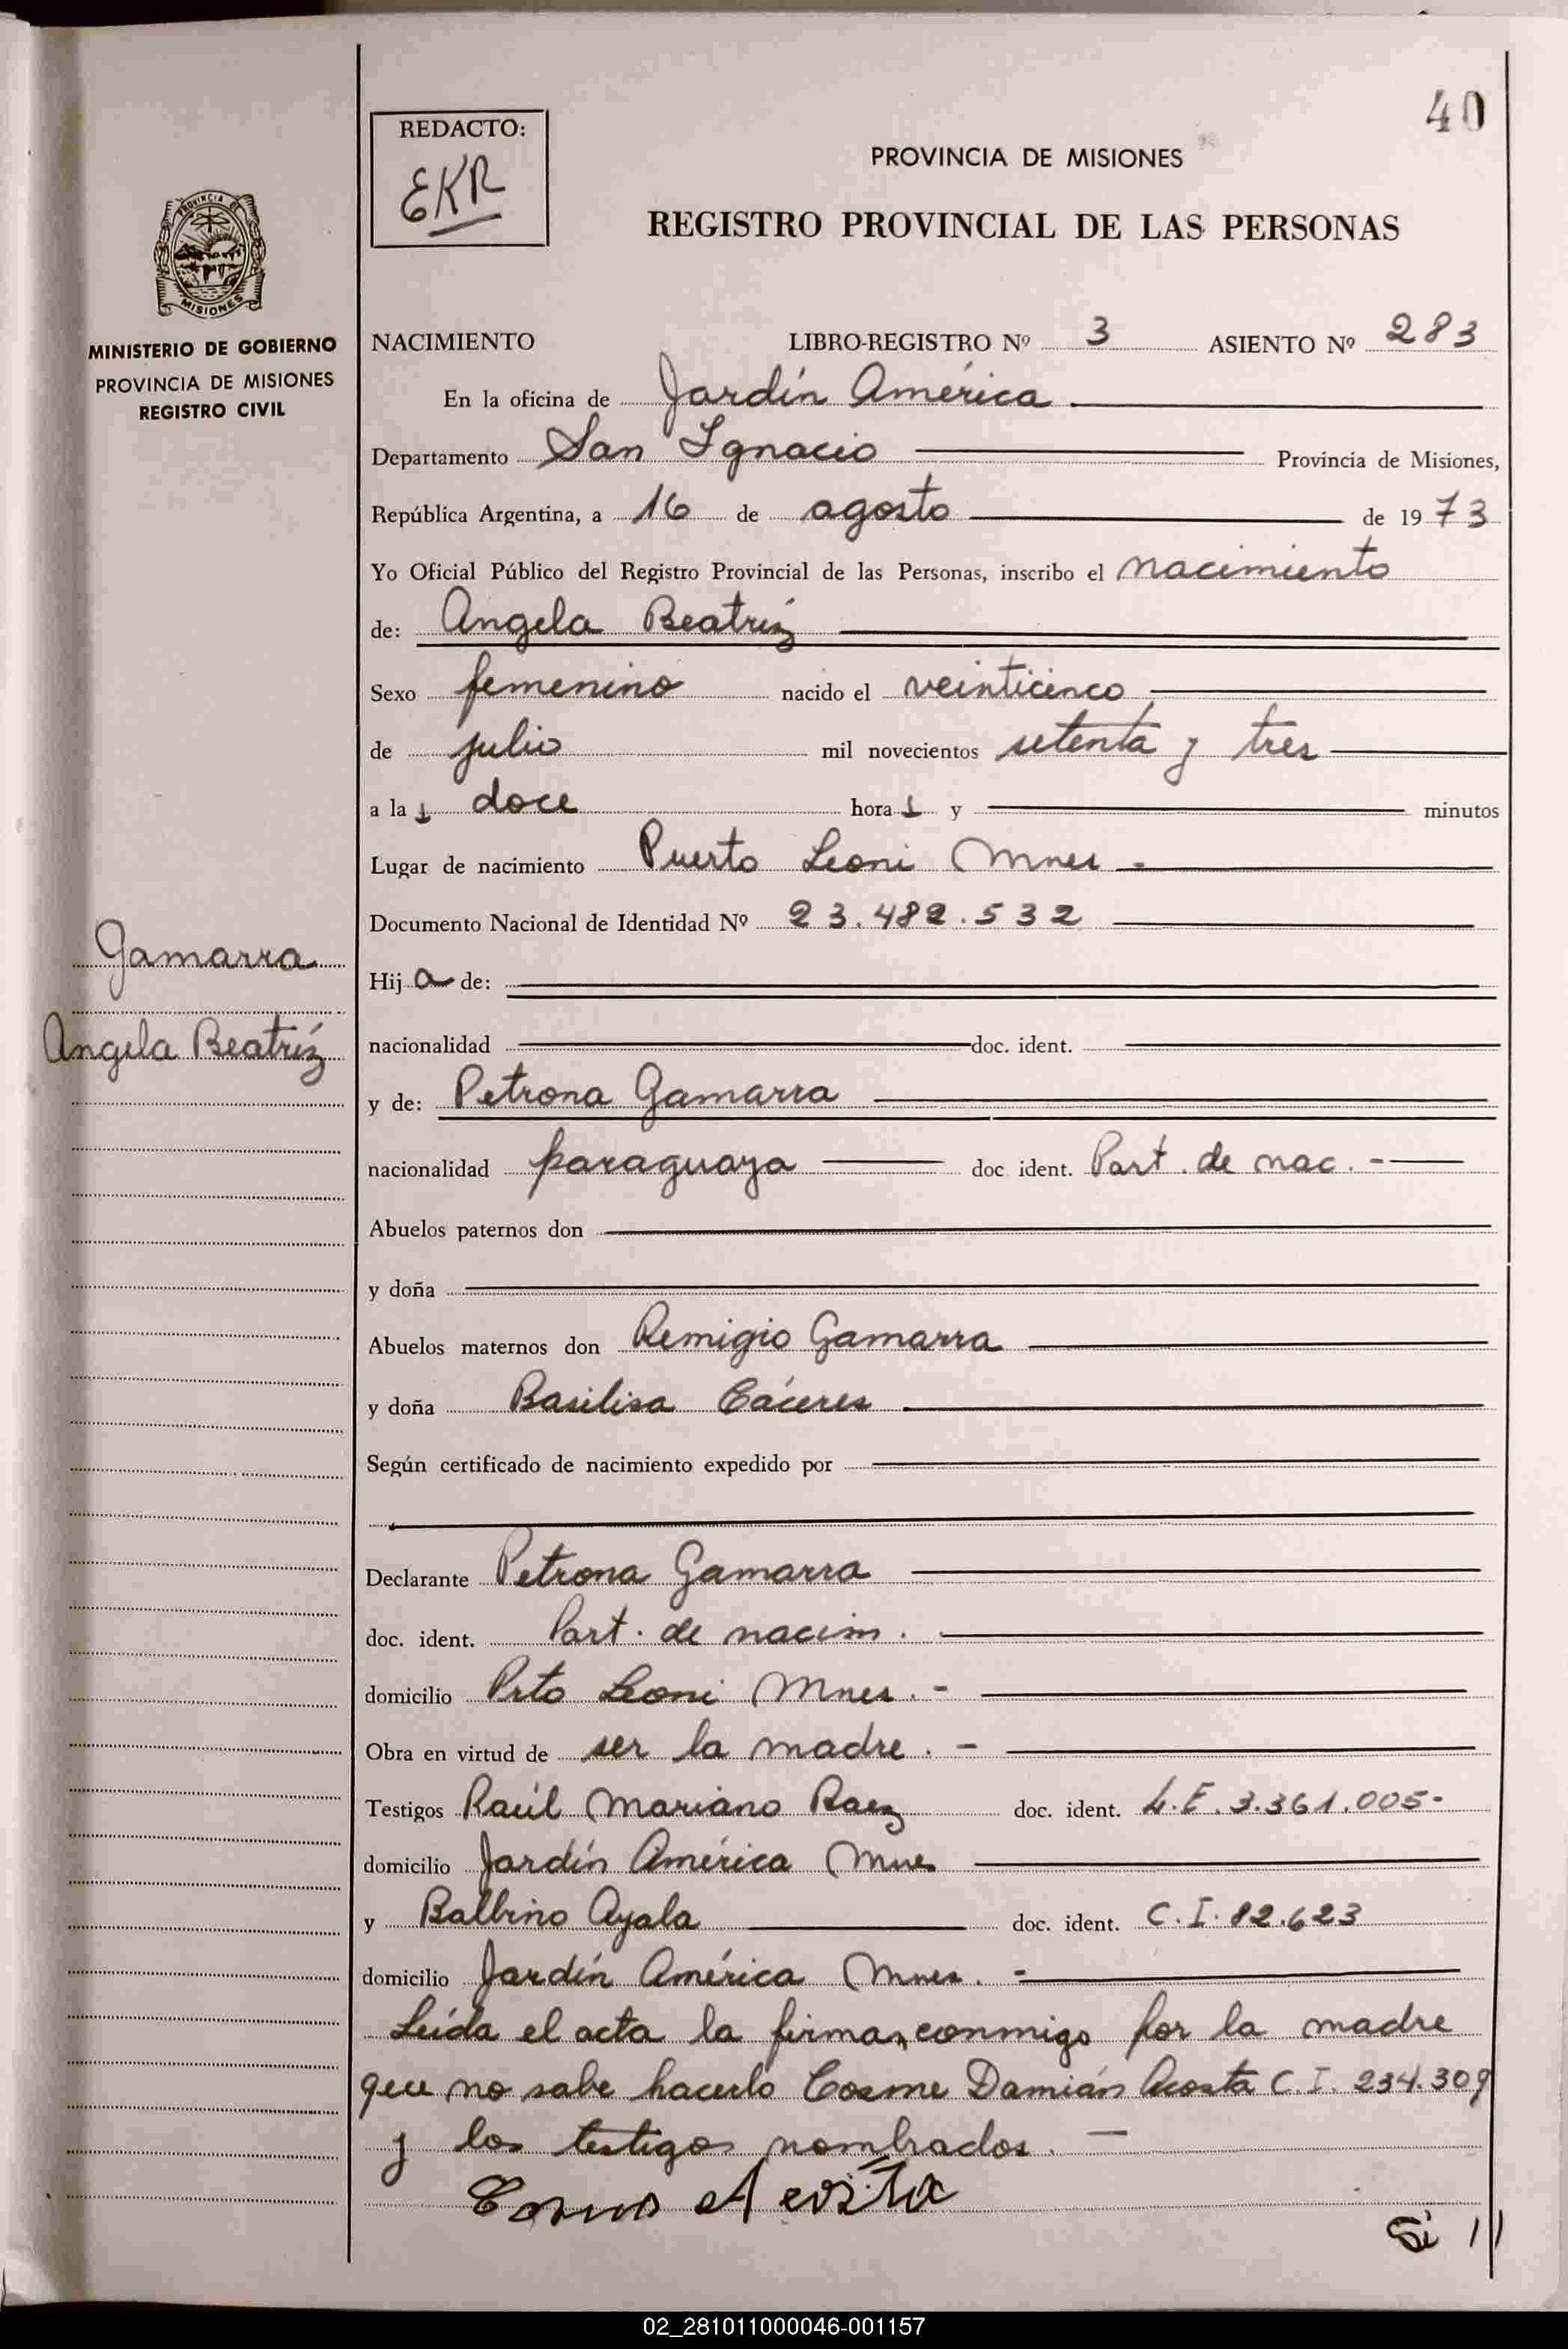 40
REDACTO:
EKR
PROVINCIA DE MISIONES
REGISTRO PROVINCIAL DE LAS PERSONAS
PROVINCIA DE
MISIONES
MINISTERIO DE GOBIERNO
PROVINCIA DE MISIONES
REGISTRO CIVIL
NACIMIENTO LIBRO-REGISTRO Nº 3 ASIENTO Nº 283
En la oficina de Jardín América
Departamento San Ignacio Provincia de Misiones,
República Argentina, a 16 de agosto de 1973
Yo Oficial Público del Registro Provincial de las Personas, inscribo el nacimiento
de: Angela Beatríz
Sexo femenino nacido el veinticinco
de julio mil novecientos setenta y tres
a la s doce hora s y minutos
Lugar de nacimiento Puerto Leoni Mnes -
Documento Nacional de Identidad Nº 23.482.532
Gamarra
Angela Beatríz
Hij a de:
nacionalidad doc. ident.
y de: Petrona Gamarra
nacionalidad paraguaya doc ident. Part. de nac. -
Abuelos paternos don
y doña
Abuelos maternos don Remigio Gamarra
y doña Basilisa Cáceres
Según certificado de nacimiento expedido por
Declarante Petrona Gamarra
doc. ident. Part. de nacim.
domicilio Pto Leoni Mnes. -
Obra en virtud de ser la madre. -
Testigos Raúl Mariano Raez doc. ident. L.E. 3.361.005-
domicilio Jardín América Mnes
y Balbino Ayala doc. ident. C.I. 82.623
domicilio Jardín América Mnes. -
Leída el acta la firman conmigo por la madre
que no sabe hacerlo Cosme Damián Acosta C.I. 234.309
y los testigos nombrados. —
Si //
02_281011000046-001157